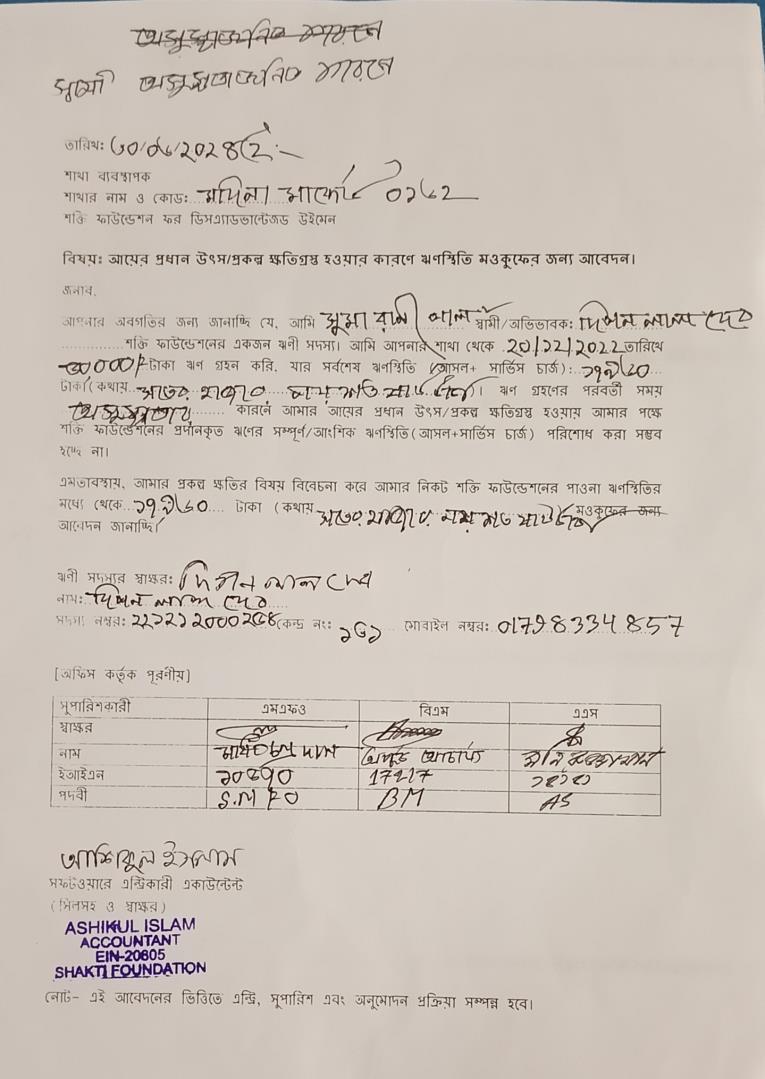 অসুস্থতাজনিত কারনে
স্বামী অসুস্থতাজনিত কারনে
তারিখঃ ৩০/০৬/২০২৪ইং
শাখা ব্যবস্থাপক
শাখার নাম ও কোডঃ মদিনা মার্কেট ০১৬২
শক্তি ফাউন্ডেশন ফর ডিসএ্যাডভান্টেজড উইমেন
বিষয়ঃ আয়ের প্রধান উৎস/প্রকল্প ক্ষতিগ্রস্থ হওয়ার কারণে ঋণস্থিতি মওকুফের জন্য আবেদন।
জনাব,
আপনার অবগতির জন্য জানাচ্ছি যে, আমি সুমা রানী পাল স্বামী/অভিভাবকঃ দিপন লাল দেব
শক্তি ফাউন্ডেশনের একজন ঋণী সদস্য। আমি আপনার শাখা থেকে ২০/১২/২০২২ তারিখে
৩০০০০/- টাকা ঋণ গ্রহন করি, যার সর্বশেষ ঋণস্থিতি (আসল+ সার্ভিস চার্জ): ১৭৯৬০
টাকা (কথায় সতের হাজার নয় শত ষাট)। ঋণ গ্রহণের পরবর্তী সময়
অসুস্থতার কারনে আমার আয়ের প্রধান উৎস/প্রকল্প ক্ষতিগ্রস্থ হওয়ায় আমার পক্ষে
শক্তি ফাউন্ডেশনের প্রদানকৃত ঋণের সম্পূর্ণ/আংশিক ঋণস্থিতি (আসল+সার্ভিস চার্জ) পরিশোধ করা সম্ভব
হচ্ছে না।
এমতাবস্থায়, আমার প্রকল্প ক্ষতির বিষয় বিবেচনা করে আমার নিকট শক্তি ফাউন্ডেশনের পাওনা ঋণস্থিতির
মধ্যে থেকে ১৭৯৬০ টাকা (কথায় সতের হাজার নয় শত ষাট মওকুফের জন্য
আবেদন জানাচ্ছি।
ঋণী সদস্যর স্বাক্ষরঃ দিপন লাল দেব
নামঃ দিপন লাল দেব
সদস্য নম্বরঃ কেন্দ্র নংঃ ১৬১ মোবাইল নম্বরঃ 01798334857
[অফিস কর্তৃক পূরণীয়]
সুপারিশকারী এমএফও বিএম এএস
স্বাক্ষর
নাম
ইআইএন 17217
পদবী S.MFO BM AS
আশিকুল ইসলাম
সফটওয়ারে এন্ট্রিকারী একাউন্টেন্ট
(সিলসহ ও স্বাক্ষর)
ASHIKUL ISLAM
ACCOUNTANT
EIN-20605
SHAKTI FOUNDATION
নোট- এই আবেদনের ভিত্তিতে এন্ট্রি, সুপারিশ এবং অনুমোদন প্রক্রিয়া সম্পন্ন হবে।